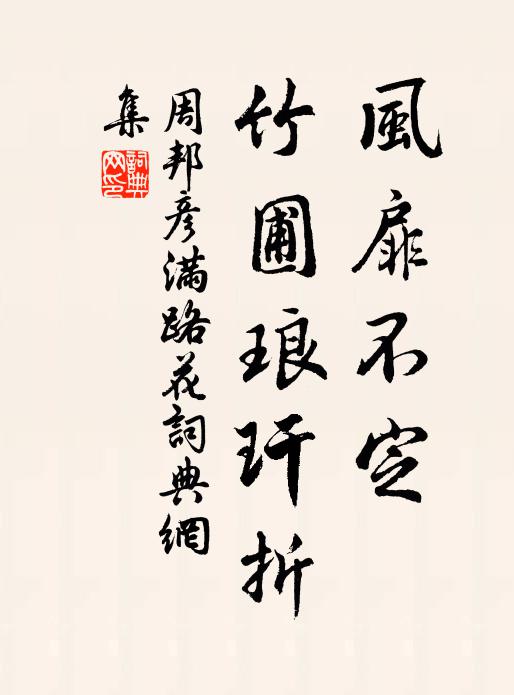 風扉不定
竹圃琅玕折
周邦彥滿路花詞典網
集
詞典網印